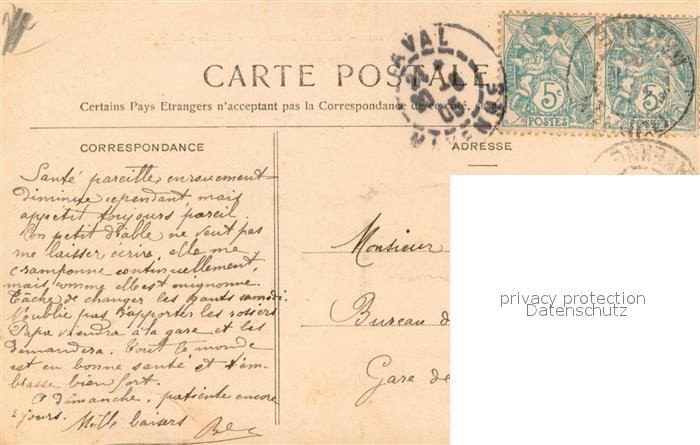 LAVAL
MAYENNE
CARTE POSTALE
Certains Pays Etrangers n'acceptant pas la Correspondance de ce côté, s
5c
POSTES
5c
POSTES
CORRESPONDANCE
ADRESSE
Santé pareille enrouement
diminue cependant, mais
appetit toujours pareil.
Mon petit diable ne veut pas
me laisser écrire, elle me
cramponne continuellement,
mais comme elle est mignonne.
Tâche de changer les gants samedi.
N'oublie pas d'apporter les rosiers
Papa viendra à la gare et les
demandera. Tout le monde
est en bonne santé et t'em-
brasse bien fort.
A dimanche, patiente encore
2 jours. Mille baisers
Monsieur
Bureau d
Gare de
privacy protection
Datenschutz